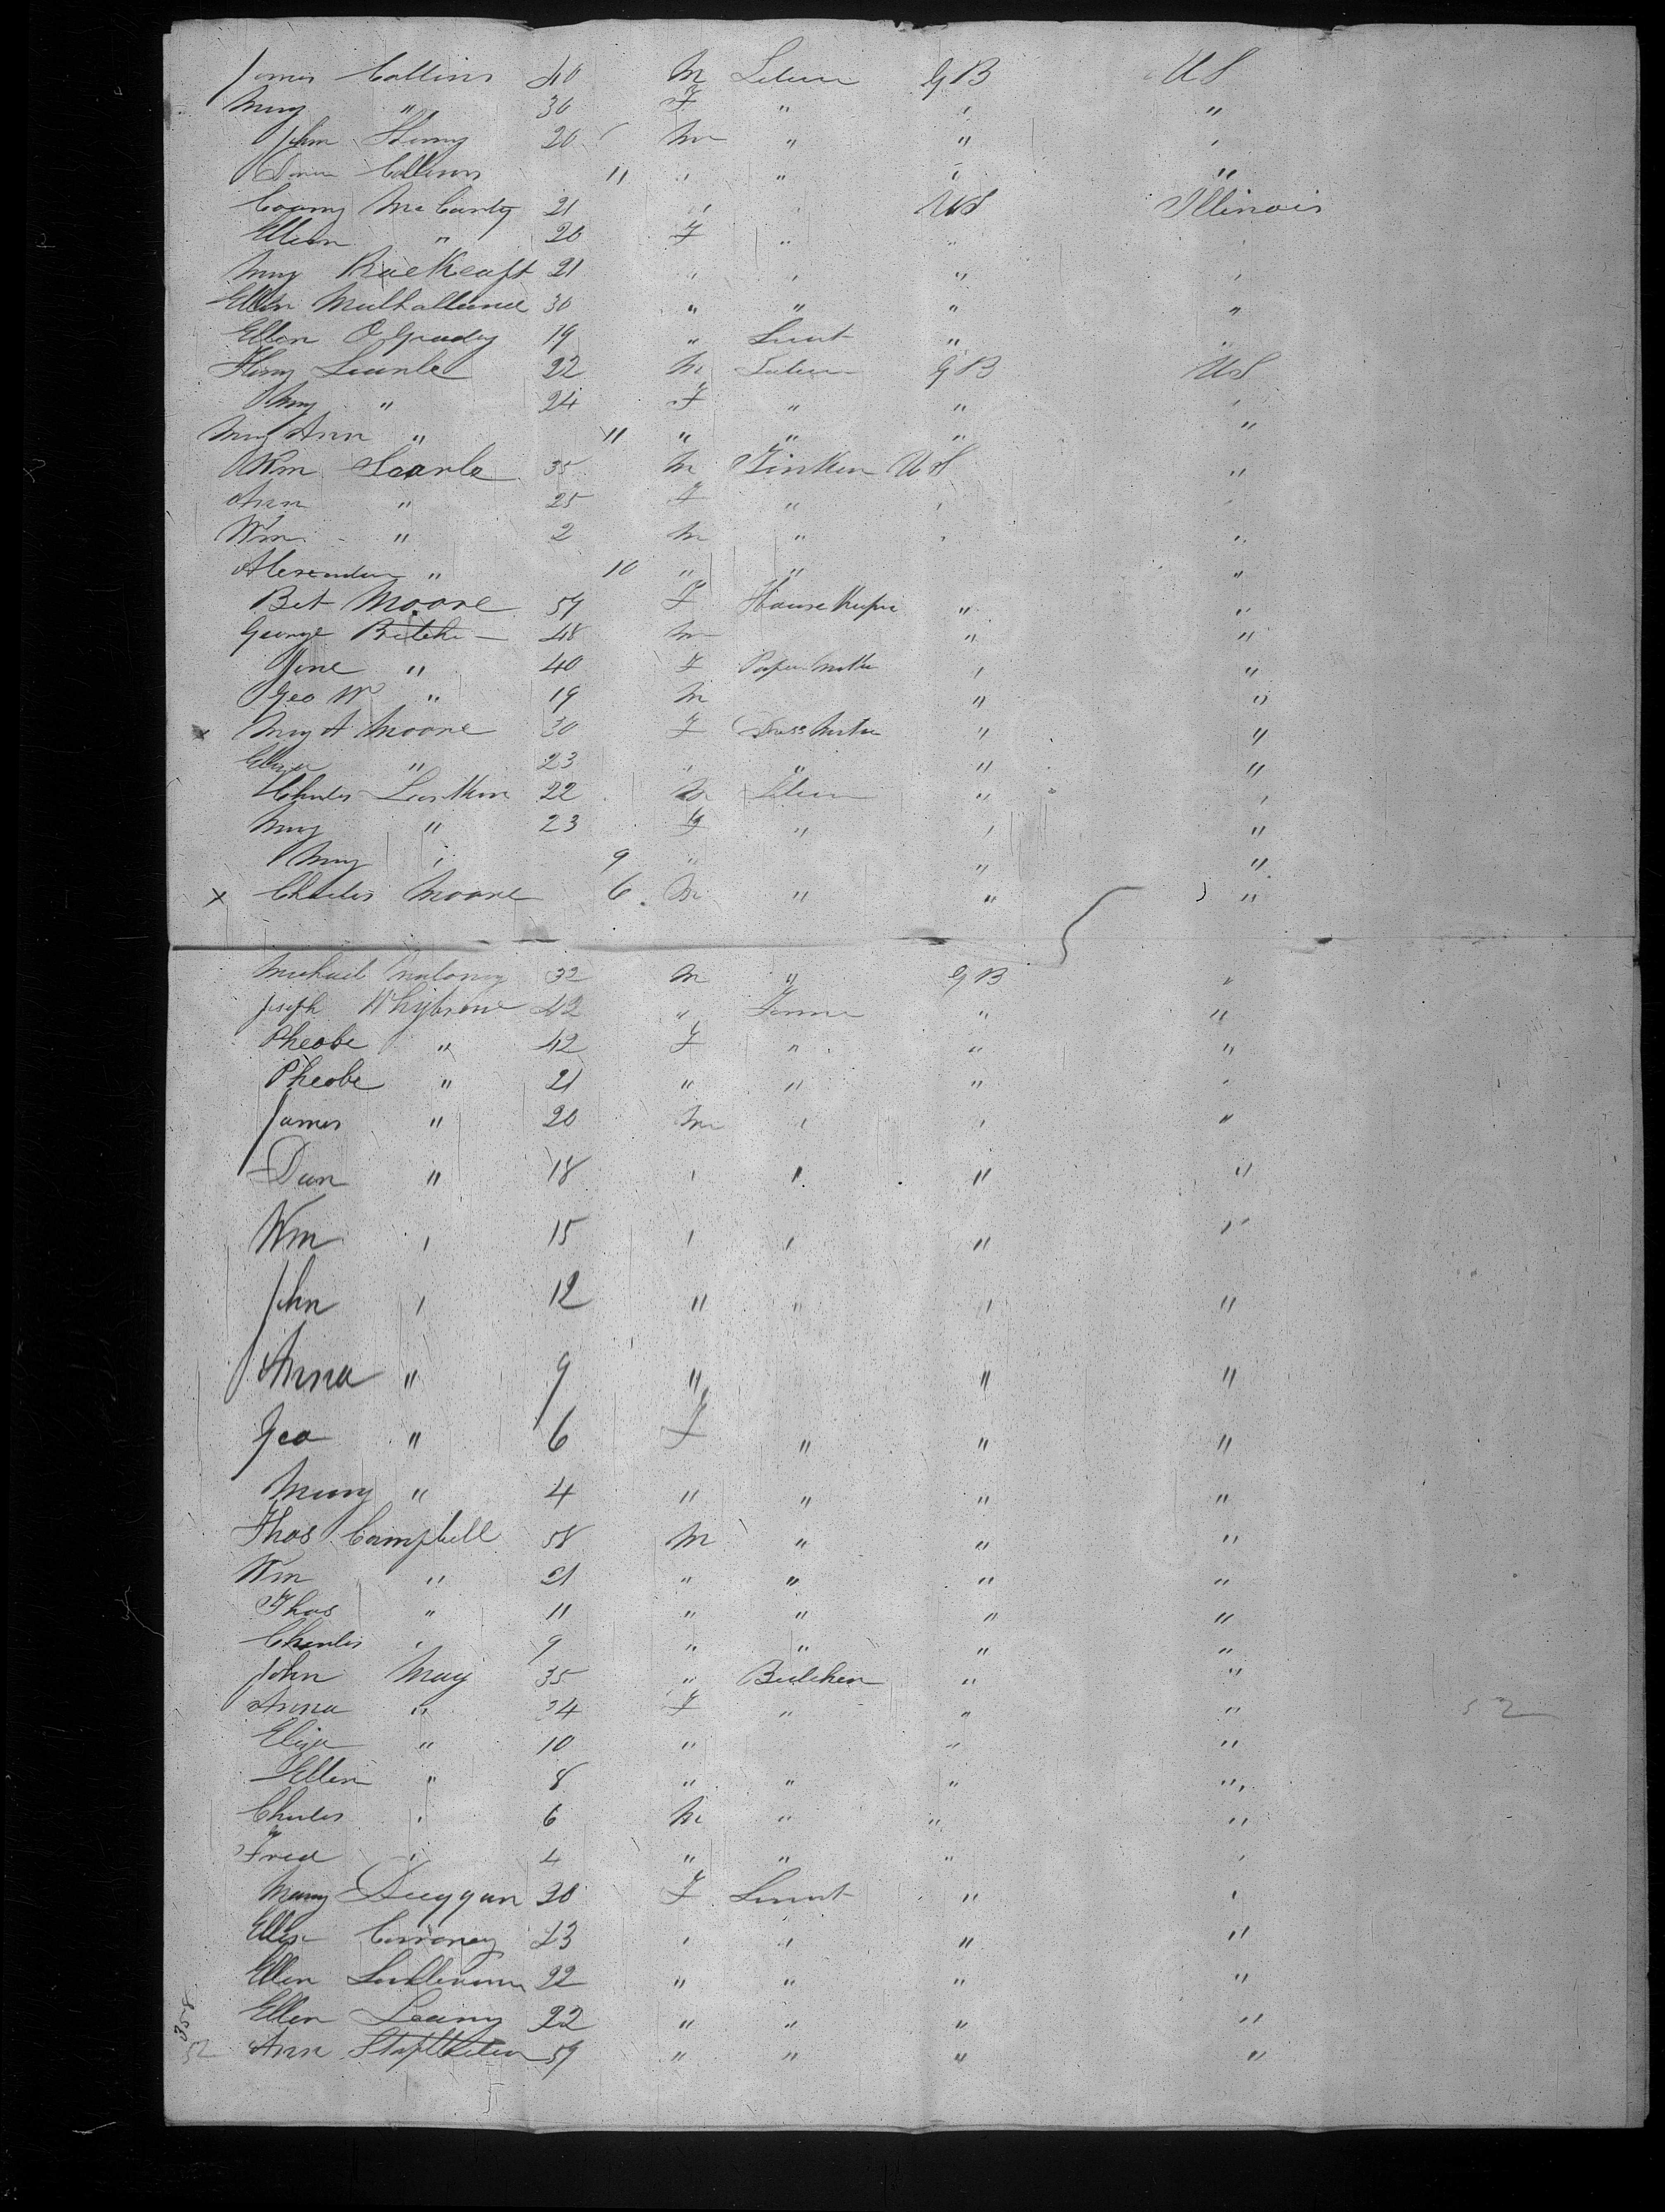 James Collins 40 M GB US
Mary " 30 F " " "
John Henry 20 M " " "
Collins 11 " " " "
McCarty 21 " " US Illinois
Ellen " 20 F " " "
Mary 21 " " " "
Ellen 30 " " " "
Ellen O Grady 19 " " "
Searle 22 M GB US
Amy " 24 F " " "
Mary Ann " 11 " " " "
Wm Searle 35 M US "
Ann " 25 F " " "
Wm " 2 M " " "
Alexander " 10 " " "
Bet Moore 59 F House Keeper " "
George 48 M " "
Jane " 40 F Paper Maker " "
Geo W " 19 M " "
x Mary A Moore 30 F Dress Maker " "
Eliza " 23 " " " "
Charles Larkin 22 M " "
Mary " 23 F " " "
Amy " 9 " " "
x Charles Moore 6 M " " "
Michael Maloney 32 M " GB "
Joseph Whybrow 42 " Farmer " "
Pheobe " 42 F " " "
Pheobe " 21 " " " "
James " 20 M " " "
Dan " 18 " " " "
Wm " 15 " " " "
John " 12 " " " "
Anna " 9 " " "
Geo " 6 F " " "
Mary " 4 " " " "
Thos Campbell 58 M " " "
Wm " 21 " " " "
Thos " 11 " " " "
Charles " 9 " " " "
John May 35 " Butcher " "
Anna " 34 F " " " 52
Eliza " 10 " " "
Ellen " 8 " " " "
Charles " 6 M " " "
Fred " 4 " " " "
Mary Duggan 20 F " "
Ellen 23 " " " "
Ellen 22 " " " "
Ellen 22 " " " "
52 Ann 59 " " " "